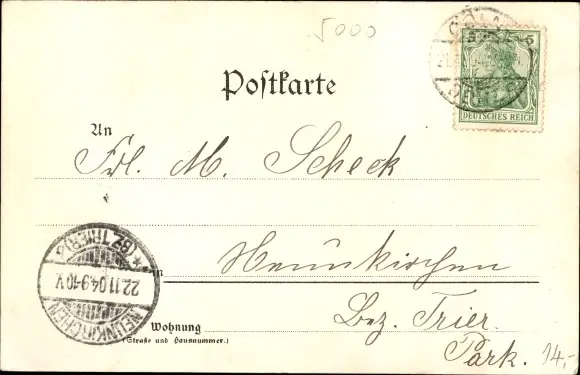 5000
CÖLN
5 5
DEUTSCHES REICH
Poſtkarte
An
Frl. M. Scheck
in Neunkirchen
Wohnung
(Straße und Hausnummer.)
Bez. Trier.
Park. 14,-
* (BZ. TRIER) a
22.11.04.9-10.V.
NEUNKIRCHEN